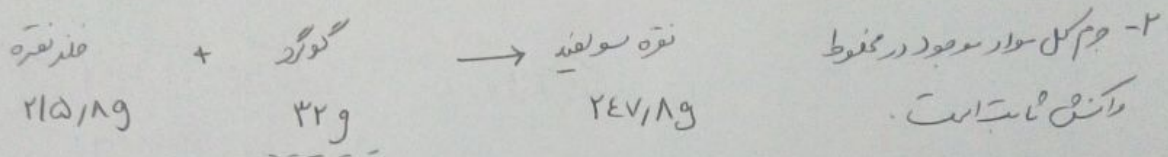 ۲- جرم کل مواد موجود در مخلوط
واکنش ثابت است.
فلز نقره + گوگرد → نقره سولفید
۲۱۵,۸g ۳۲g ۲۴۷,۸g